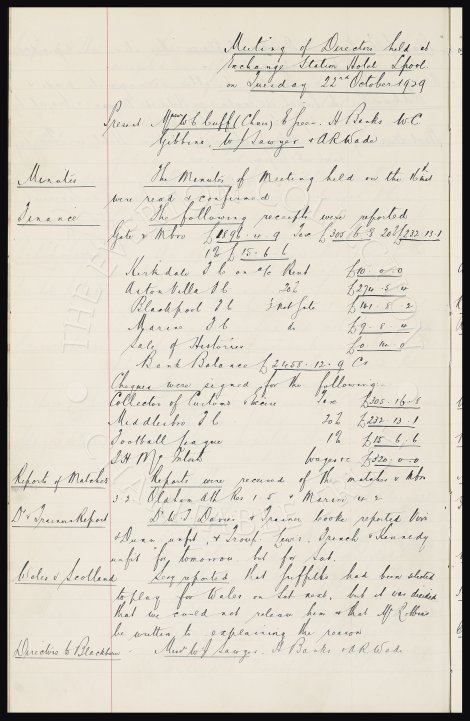 Meeting of Directors held at
Exchange Station Hotel Lpool.
on Tuesday 22nd October 1929
Present Messrs W C Cuff (Chair) E Green. A Banks W.C.
Gibbins, W J Sawyer & A R Wade
Minutes
The Minutes of Meeting held on the 16th inst
were read & confirmed
Finance
The following receipts were reported
Gate v Mbro £1896. 4. 9 Tax £305 6 8 20% £232 13 1
1% £15. 6. 6
Kirkdale F C on a/c Rent £10. 0. 0
Aston Villa F C 20% £274. 5. 4
Blackpool F C ½ Net Gate £141. 5. 2
Marine F C do £9. 8. 4
Sale of Histories £0. 14. 0
Bank Balance £2458. 12. 9 Cr
Cheques were signed for the following:
Collector of Customs & Excise Tax £305. 16. 8
Middlesbro F.C. 20% £232. 13. 1
Football League 1% £15. 6. 6
J H McIntosh Wages &c £320. 0. 0
Reports of Matches
Reports were received of the matches v Mbro
3 2 Oldham Ath Res 1. 5 & Marine 4 2
Dr & Trainers Report
Dr W T Davies & Trainer Cooke reported
& Dunn unfit, & Troup Lewis, French & Kennedy
unfit for tomorrow but for Sat.
Wales v Scotland
Secy reported that Griffiths had been selected
to play for Wales on Sat next, but it was decided
that we could not release him & that Mr Robbins
be written to explaining the reason
Directors to Blackburn
Messrs W J Sawyer. A Banks & A R Wade